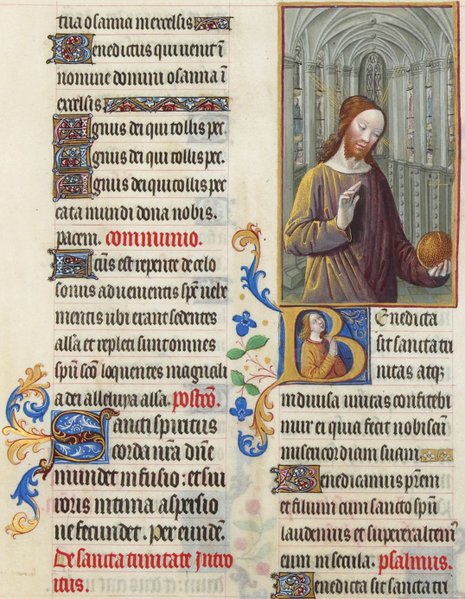 tua osanna in excelsis
Benedictus qui venit ī
nomine domini osanna ī
excelsis
Agnus dei qui tollis pec.
Agnus dei qui tollis pec.
Agnus dei qui tollis pec
cata mundi dona nobis.
pacem. communio.
Factus est repente de celo
sonus advenientis spūs vehe
mentis ubi erant sedentes
alla et repleti sunt omnes
spū scō loquentes magnali
a dei alleluya alla. postcō.
Sancti spiritus
corda nrā dnē
mundet infusio: et sui
roris intima aspersio
ne fecundet. Per eundē.
De sancta trinitate Intro
itus.
Benedicta
sit sancta tri
nitas atqȝ
indivisa unitas confitebi
mur ei quia fecit nobiscum
misericordiam suam
Benedicamus prēm
et filium cum sancto spū
laudemus et superexaltem᾿
eum in secula. psalmus.
Benedicta sit sancta tri